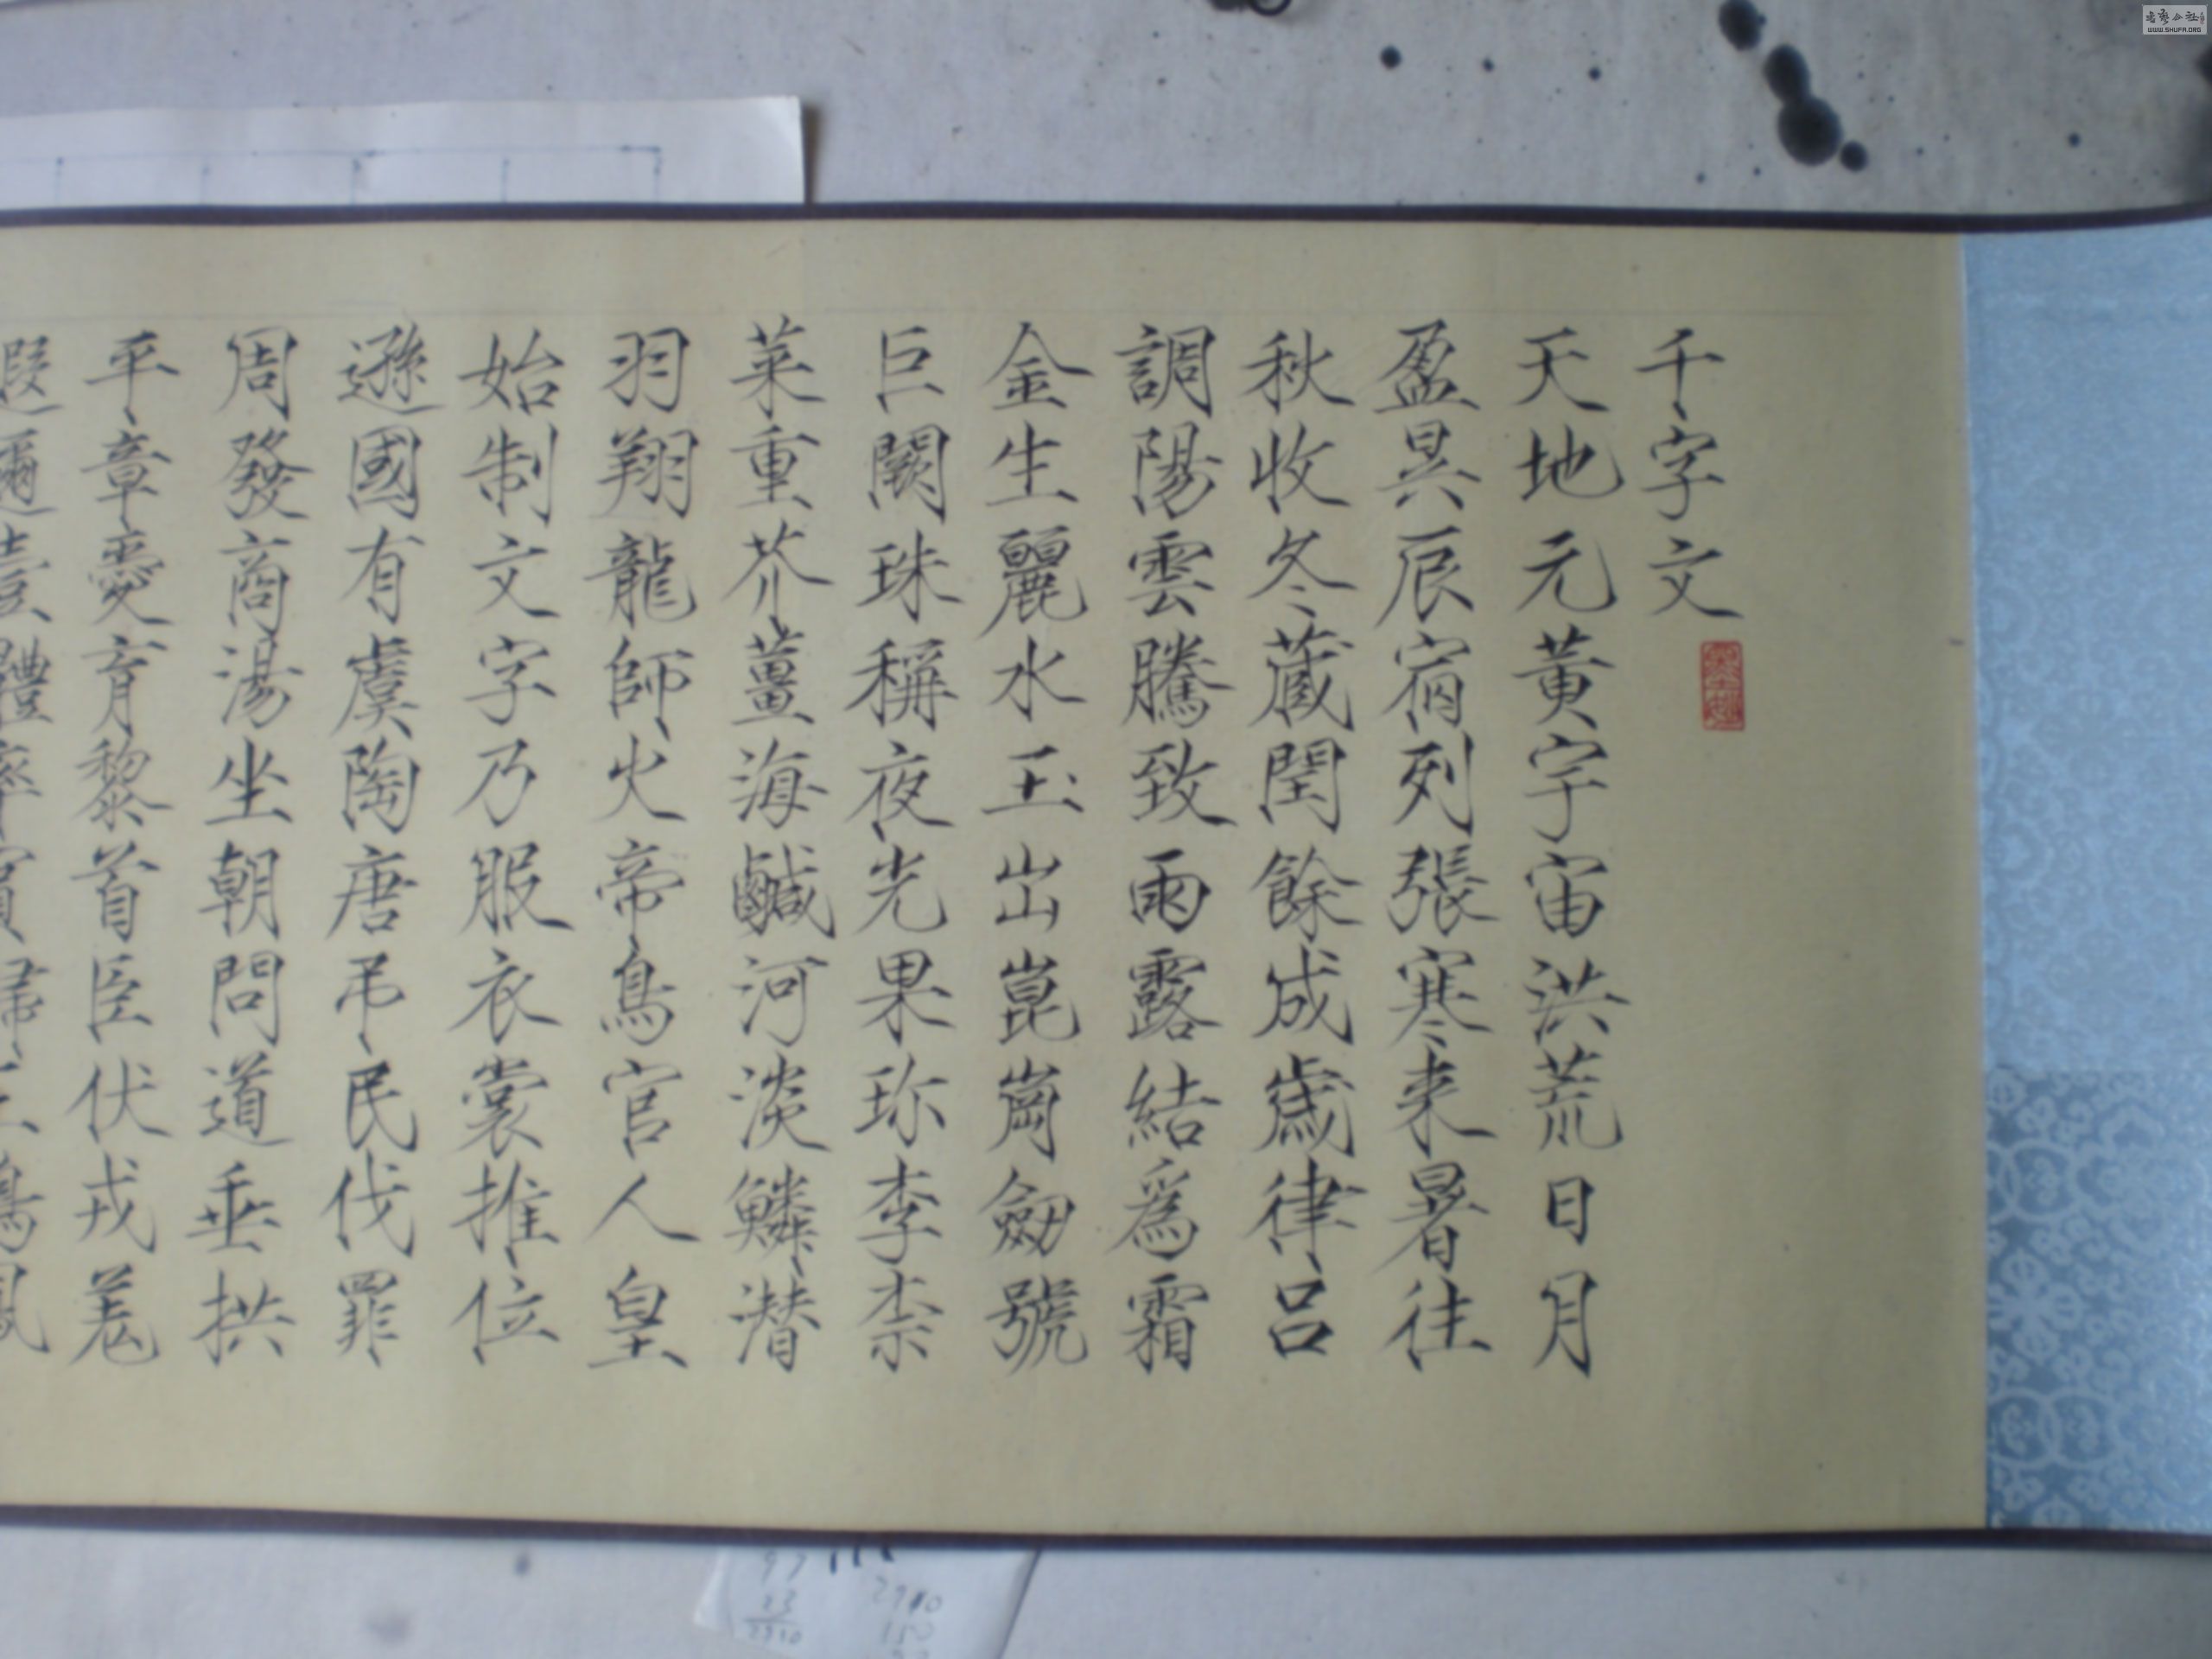 千字文
天地元黃宇宙洪荒日月
盈昃辰宿列張寒来暑往
秋收冬蔵閏餘成歲律吕
調陽雲騰致雨露結爲霜
金生麗水玉出崑崗劒號
巨闕珠稱夜光果珎李柰
菜重芥薑海鹹河淡鱗潜
羽翔龍師火帝鳥官人皇
始制文字乃服衣裳推位
遜國有虞陶唐弔民伐罪
周發商湯坐朝問道垂拱
平章愛育黎首臣伏戎羌
遐邇壹體率賓歸王鳴鳳
WWW.SHUFA.ORG
97
23
2910
150